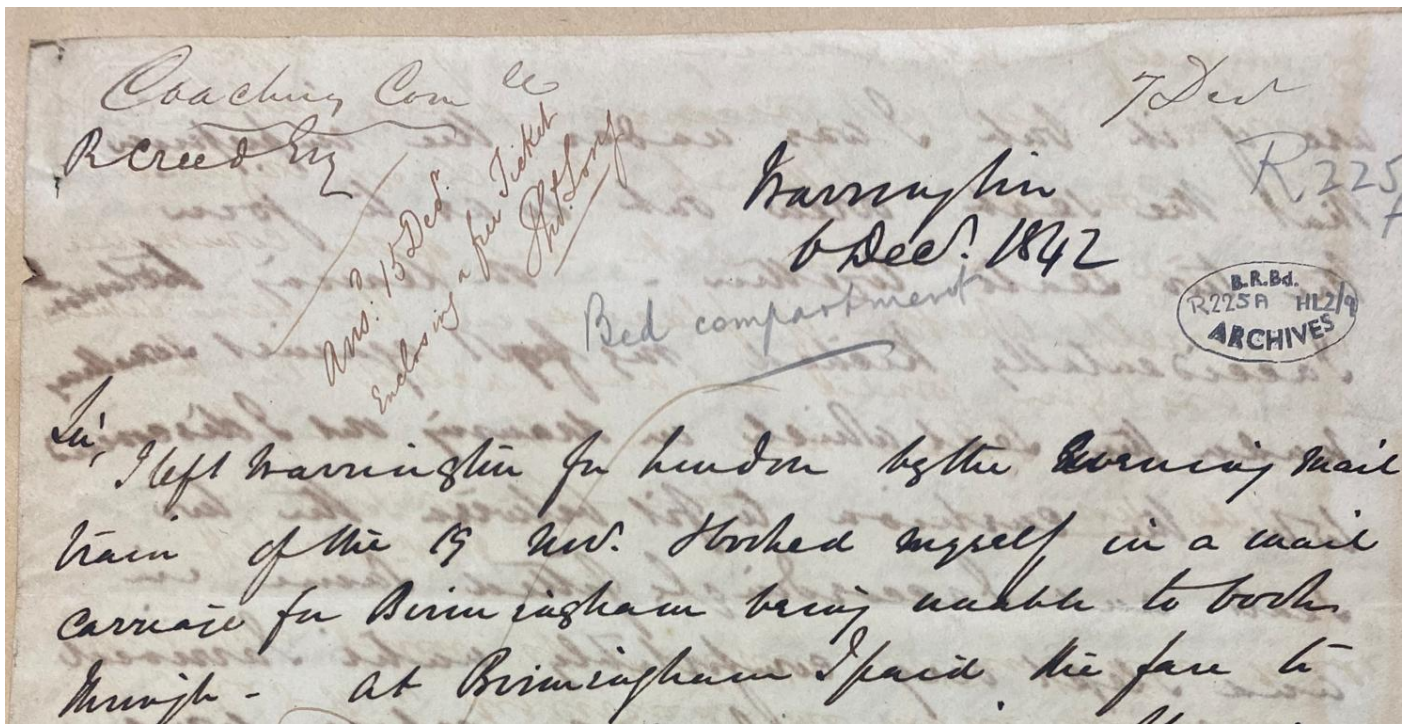 Coaching Com ee
7 Decr
R Creed Esq
Ansd. 15 Decr.
Enclosing a free Ticket
Long
R225
A
Warrington
6 Decr. 1842
Bed compartment
B.R.Bd.
R225A HL2/9
ARCHIVES
Sir,
I left Warrington for London by the Evening Mail
train of the 19 Nov. I booked myself in a mail
carriage for Birmingham being unable to book
through - at Birmingham I paid the fare to